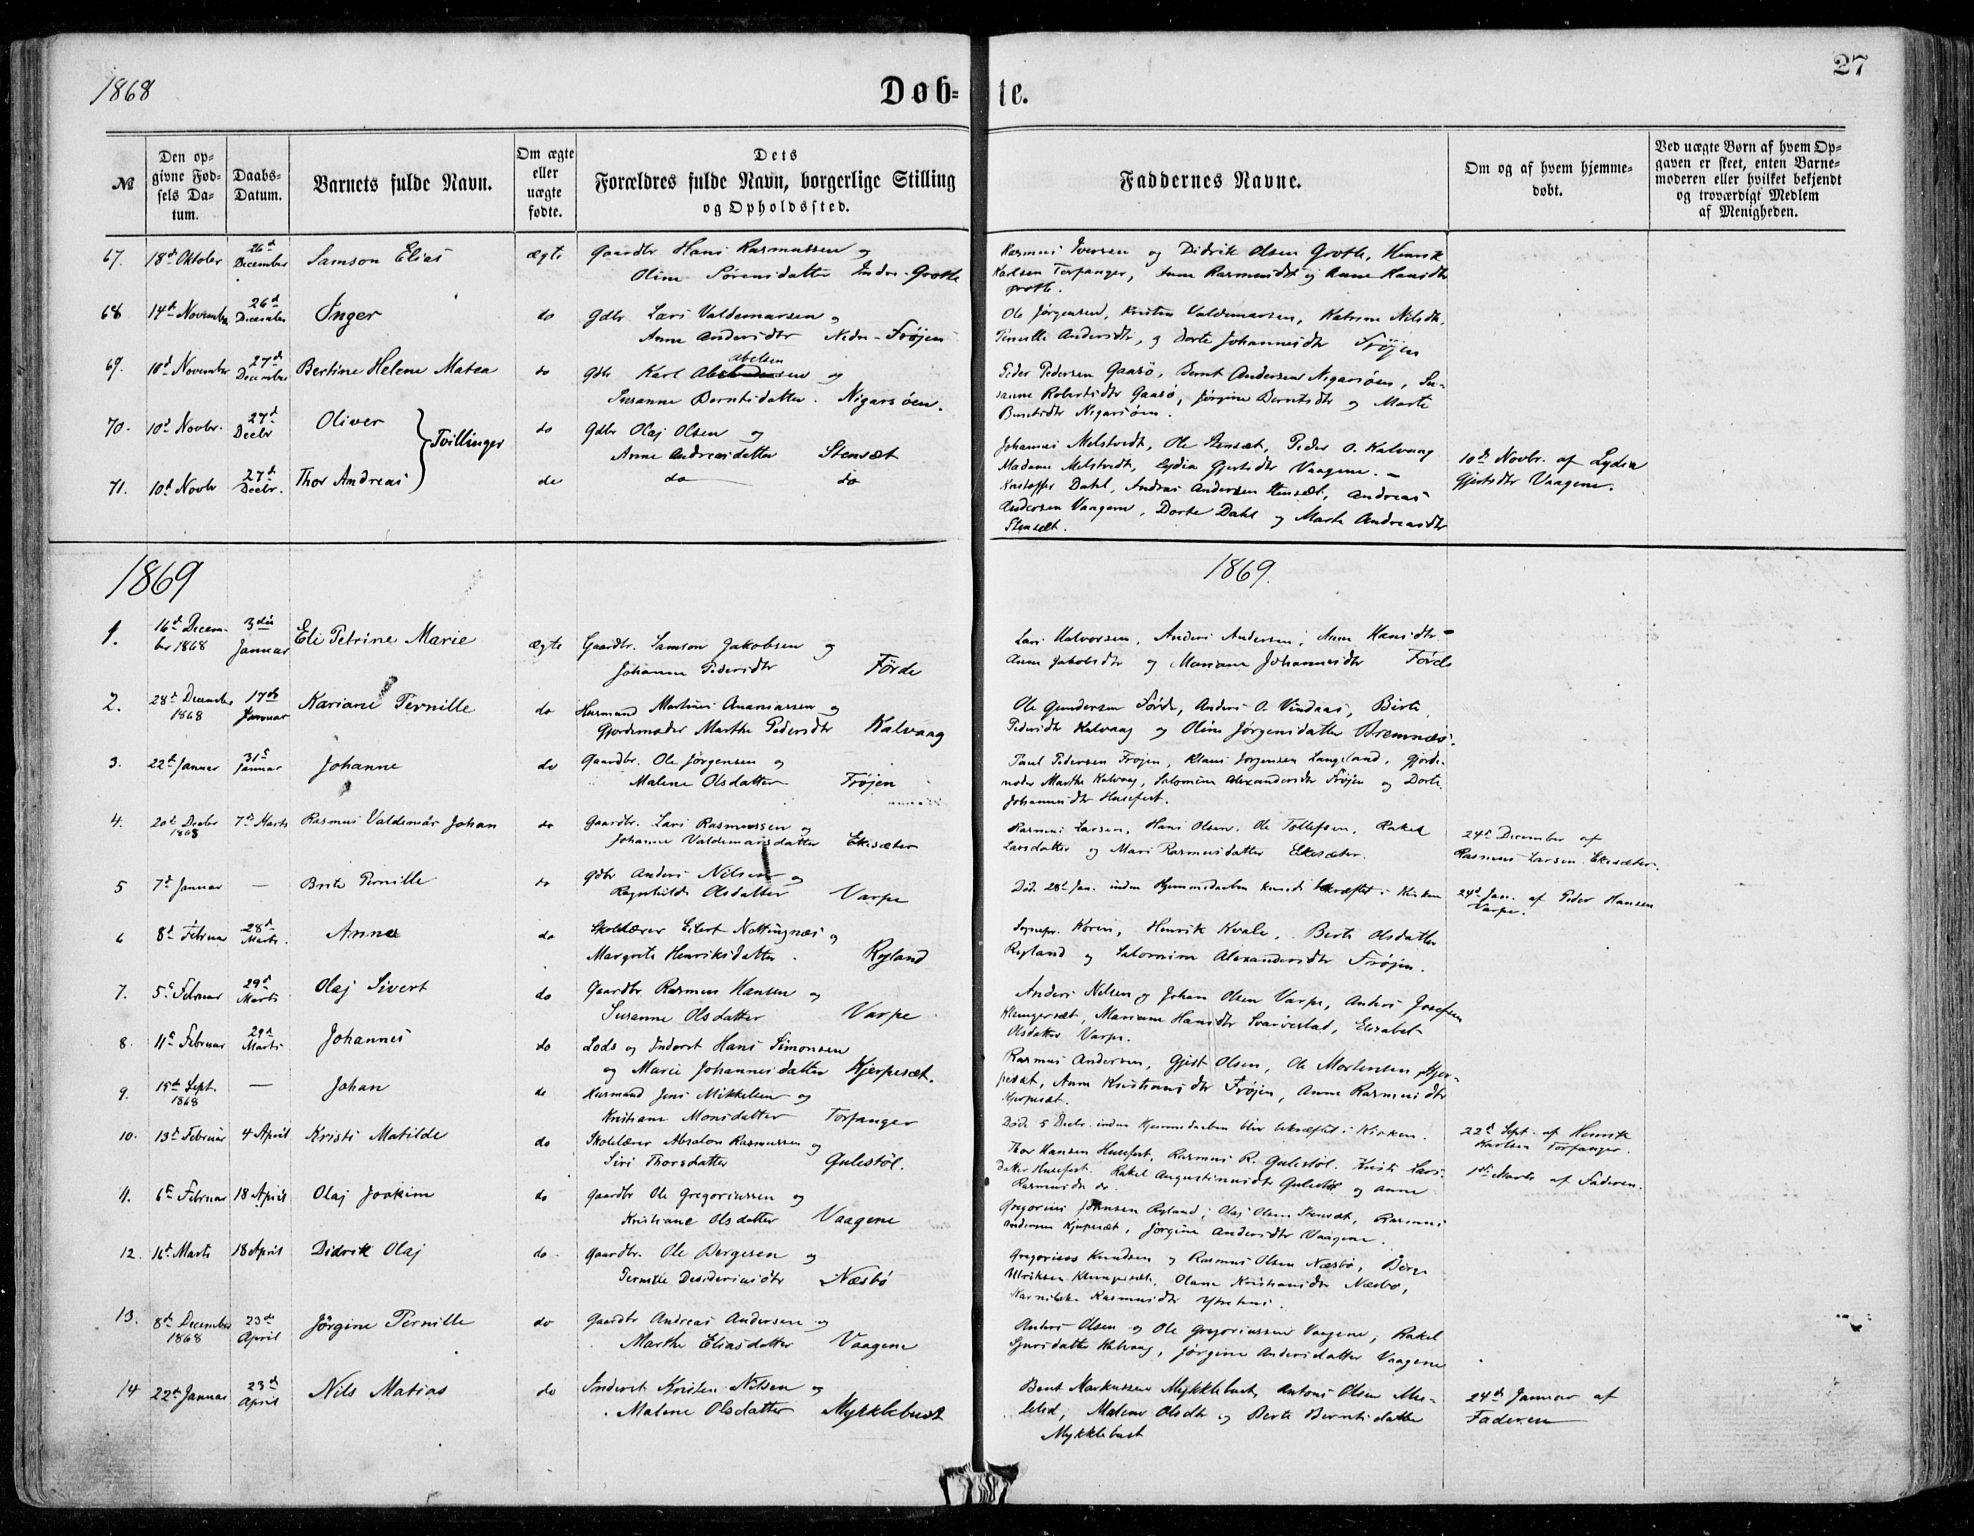 1868
Døb-
te.
27
№
Den op-
givne Fød-
sels Da-
tum.
Daabs-
Datum.
Barnets fulde Navn.
Om ægte
eller
uægte
fødte.
Dets
Forældres fulde Navn, borgerlige Stilling
og Opholdssted.
Faddernes Navne.
Om og af hvem hjemme-
døbt.
Ved uægte Børn af hvem Op-
gaven er skeet, enten Barne-
moderen eller hvilket bekjendt
og troværdigt Medlem
af Menigheden.
67. 18d Oktober 26d December Samson Elias ægte Gaardbr Hans Rasmussen og
Oline Sørensdatter Indre-Grotle
Rasmus Iversen og Didrik Olsen Grotle, Henrik
Karlsen Torfanger, Anne Rasmusdt og Anne Hansdtr
Grotle.
68 14d November 26d December Inger do Gdbr Lars Valdemarsen og
Anne Andersdtr Nedre-Frøjen
Ole Jørgensen, Kristen Valdemarsen, Katrine Nilsdtr,
Pernille Andersdtr, og Dorte Johannesdtr Frøjen
69. 10d November 27d December Bertine Helene Matea do Gdbr Karl Abelsen og
Susanne Berntsdatter. Nigarsøen.
Peder Pedersen Gaasø, Bernt Andersen Nigarsøen, Su-
sanne Robertsdtr Gaasø, Jørgine Berntsdtr og Marte
Berntsdtr Nigarsøen.
70. 10d Novbr. 27d Decbr Oliver Tvillinger do Gdbr Olaj Olsen og
Anne Andreasdatter Stensæt
Johannes Melstvedt, Ole Stensæt, Peder O. Kalvaag
Madame Melstvedt, Lydia Gjertsdtr Vaagene.
10d Novbr. af Lydia
Gjertsdtr Vaagene.
71. 10d Novbr 27d Decbr. Thor Andreas do do do
Kristoffer Dahl, Andreas Andersen Stensæt, Andreas
Andersen Vaagene, Dorte Dahl og Marte Andreasdtr
Stensæt.
1869
1869.
1. 16d Decem-
ber 1868 3die Januar Eli Petrine Marie ægte Gaardbr. Samson Jakobsen og
Johanne Pedersdtr Førde
Lars Halvorsen, Anders Andersen, Anne Hansdtr
Anne Jakobsdtr og Mariane Johannesdtr Førde
2. 28d December
1868 17de Januar Kariane Pernille do Husmand Martinus Ananiassen og
Gjordemoder Marthe Pedersdtr Kalvaag
Ole Gundersen Førde, Anders O. Vindaas, Birte
Pedersdtr Kalvaag og Oline Jørgensdatter Bremnæs.
3. 22d Januar 31d Januar Johanne do Gaardbr. Ole Jørgensen og
Malene Olsdatter Frøjen
Paul Pedersen Frøjen, Klaus Jørgensen Langeland, Gjorde-
moder Marthe Kalvaag, Salomine Alexandersdtr Frøjen og Dorte
Johannesdtr Husefest.
4. 20d Decbr
1868 7d Marts Rasmus Valdemar Johan do Gaardbr. Lars Rasmussen og
Johanne Valdemarsdatter Ekesæter
Rasmus Larsen, Hans Olsen, Ole Tollefsen, Rakel
Larsdatter og Mari Rasmusdatter Ekesæter.
24d December af
Rasmus Larsen Ekesæter.
5 7d Januar — Brite Pernille do Gdbr Anders Nilsen og
Ragnhilde Olsdatter Varpe
Død 28d Jan. inden Hjemmedaaben kunde bekræftet i Kirken
24d Jan. af Peder Hansen
Varpe.
6 8d Februar 28d Marts. Anna do Skolelærer Eilert Nottingnæs og
Margrete Henriksdatter. Ryland
Sognepr. Koren, Henrik Kvale, Berte Olsdatter
Ryland og Salomine Alexandersdtr Frøjen.
7. 5d Februar 29d Marts Olaj Sivert do Gaardbr Rasmus Hansen og
Susanne Olsdatter Varpe
Anders Nilsen og Johan Olsen Varpe, Anders Josefsen
Klungersæt, Mariane Hansdtr Svarvestad, Elisabet
Olsdatter Varpe.
8. 11d Februar 29d Marts Johannes do Lods og Inderst Hans Simonsen
og Marie Johannesdatter Kjerpesæt.
Rasmus Andersen, Gjert Olsen, Ole Mortensen Kjer-
pesæt, Anne Kristiansdtr Frøjen, Anne Rasmusdtr
Kjerpesæt.
9. 15d Sept.
1868 — Johan do Husmand Jens Mikkelsen og
Kristiane Monsdatter Torfanger
Døde 5 Decbr. inden Hjemmedaaben blev bekræftet i Kirken.
22d Sept. af Henrik
Karlsen Torfanger.
10. 13d Februar 4 April Kristi Matilde do Skolelærer Absalon Rasmussen og
Siri Thorsdatter Gulestøl.
Thor Hansen Husefest, Rasmus R. Gulestøl. Kristi Lars-
datter Husefest. Rakel Augustinusdtr Gulestøl og Anne
Rasmusdtr do.
1ste Marts af Faderen.
11. 6d Februar 18 April Olaj Joakim do Gaardbr Ole Gregoriussen og
Kristiane Olsdatter Vaagene
Gregorius Johnsen Ryland, Olaj Olsen Stensæt, Rasmus
Andersen Kjerpesæt, Jørgine Andersdtr Vaagene.
12. 16d Marts 18 April Didrik Olaj do. Gaardbr. Ole Bergesen og
Pernille Desideriusdtr Næsbø
Gregorius Knudsen og Rasmus Olsen Næsbø, Berge
Ulriksen Klungersæt, Olane Kristiansdtr Næsbø,
Rasmusdtr
13. 8d December
1868 23de April Jørgine Pernille do Gaardbr Andreas Andersen og
Marthe Eliasdatter Vaagene
Anders Olsen og Ole Gregoriussen Vaagene, Rakel
Sjursdatter Kalvaag, Jørgine Andersdatter Vaagene
14 22d Januar 23d April Nils Matias do Inderst Kristen Nilsen og
Malene Olsdatter Myklebust
Bent Markussen Myklebust, Antons Olsen Me-
lelid, Malene Olsdtr og Berte Berntsdatter
Myklebust
24d Januar af
Faderen